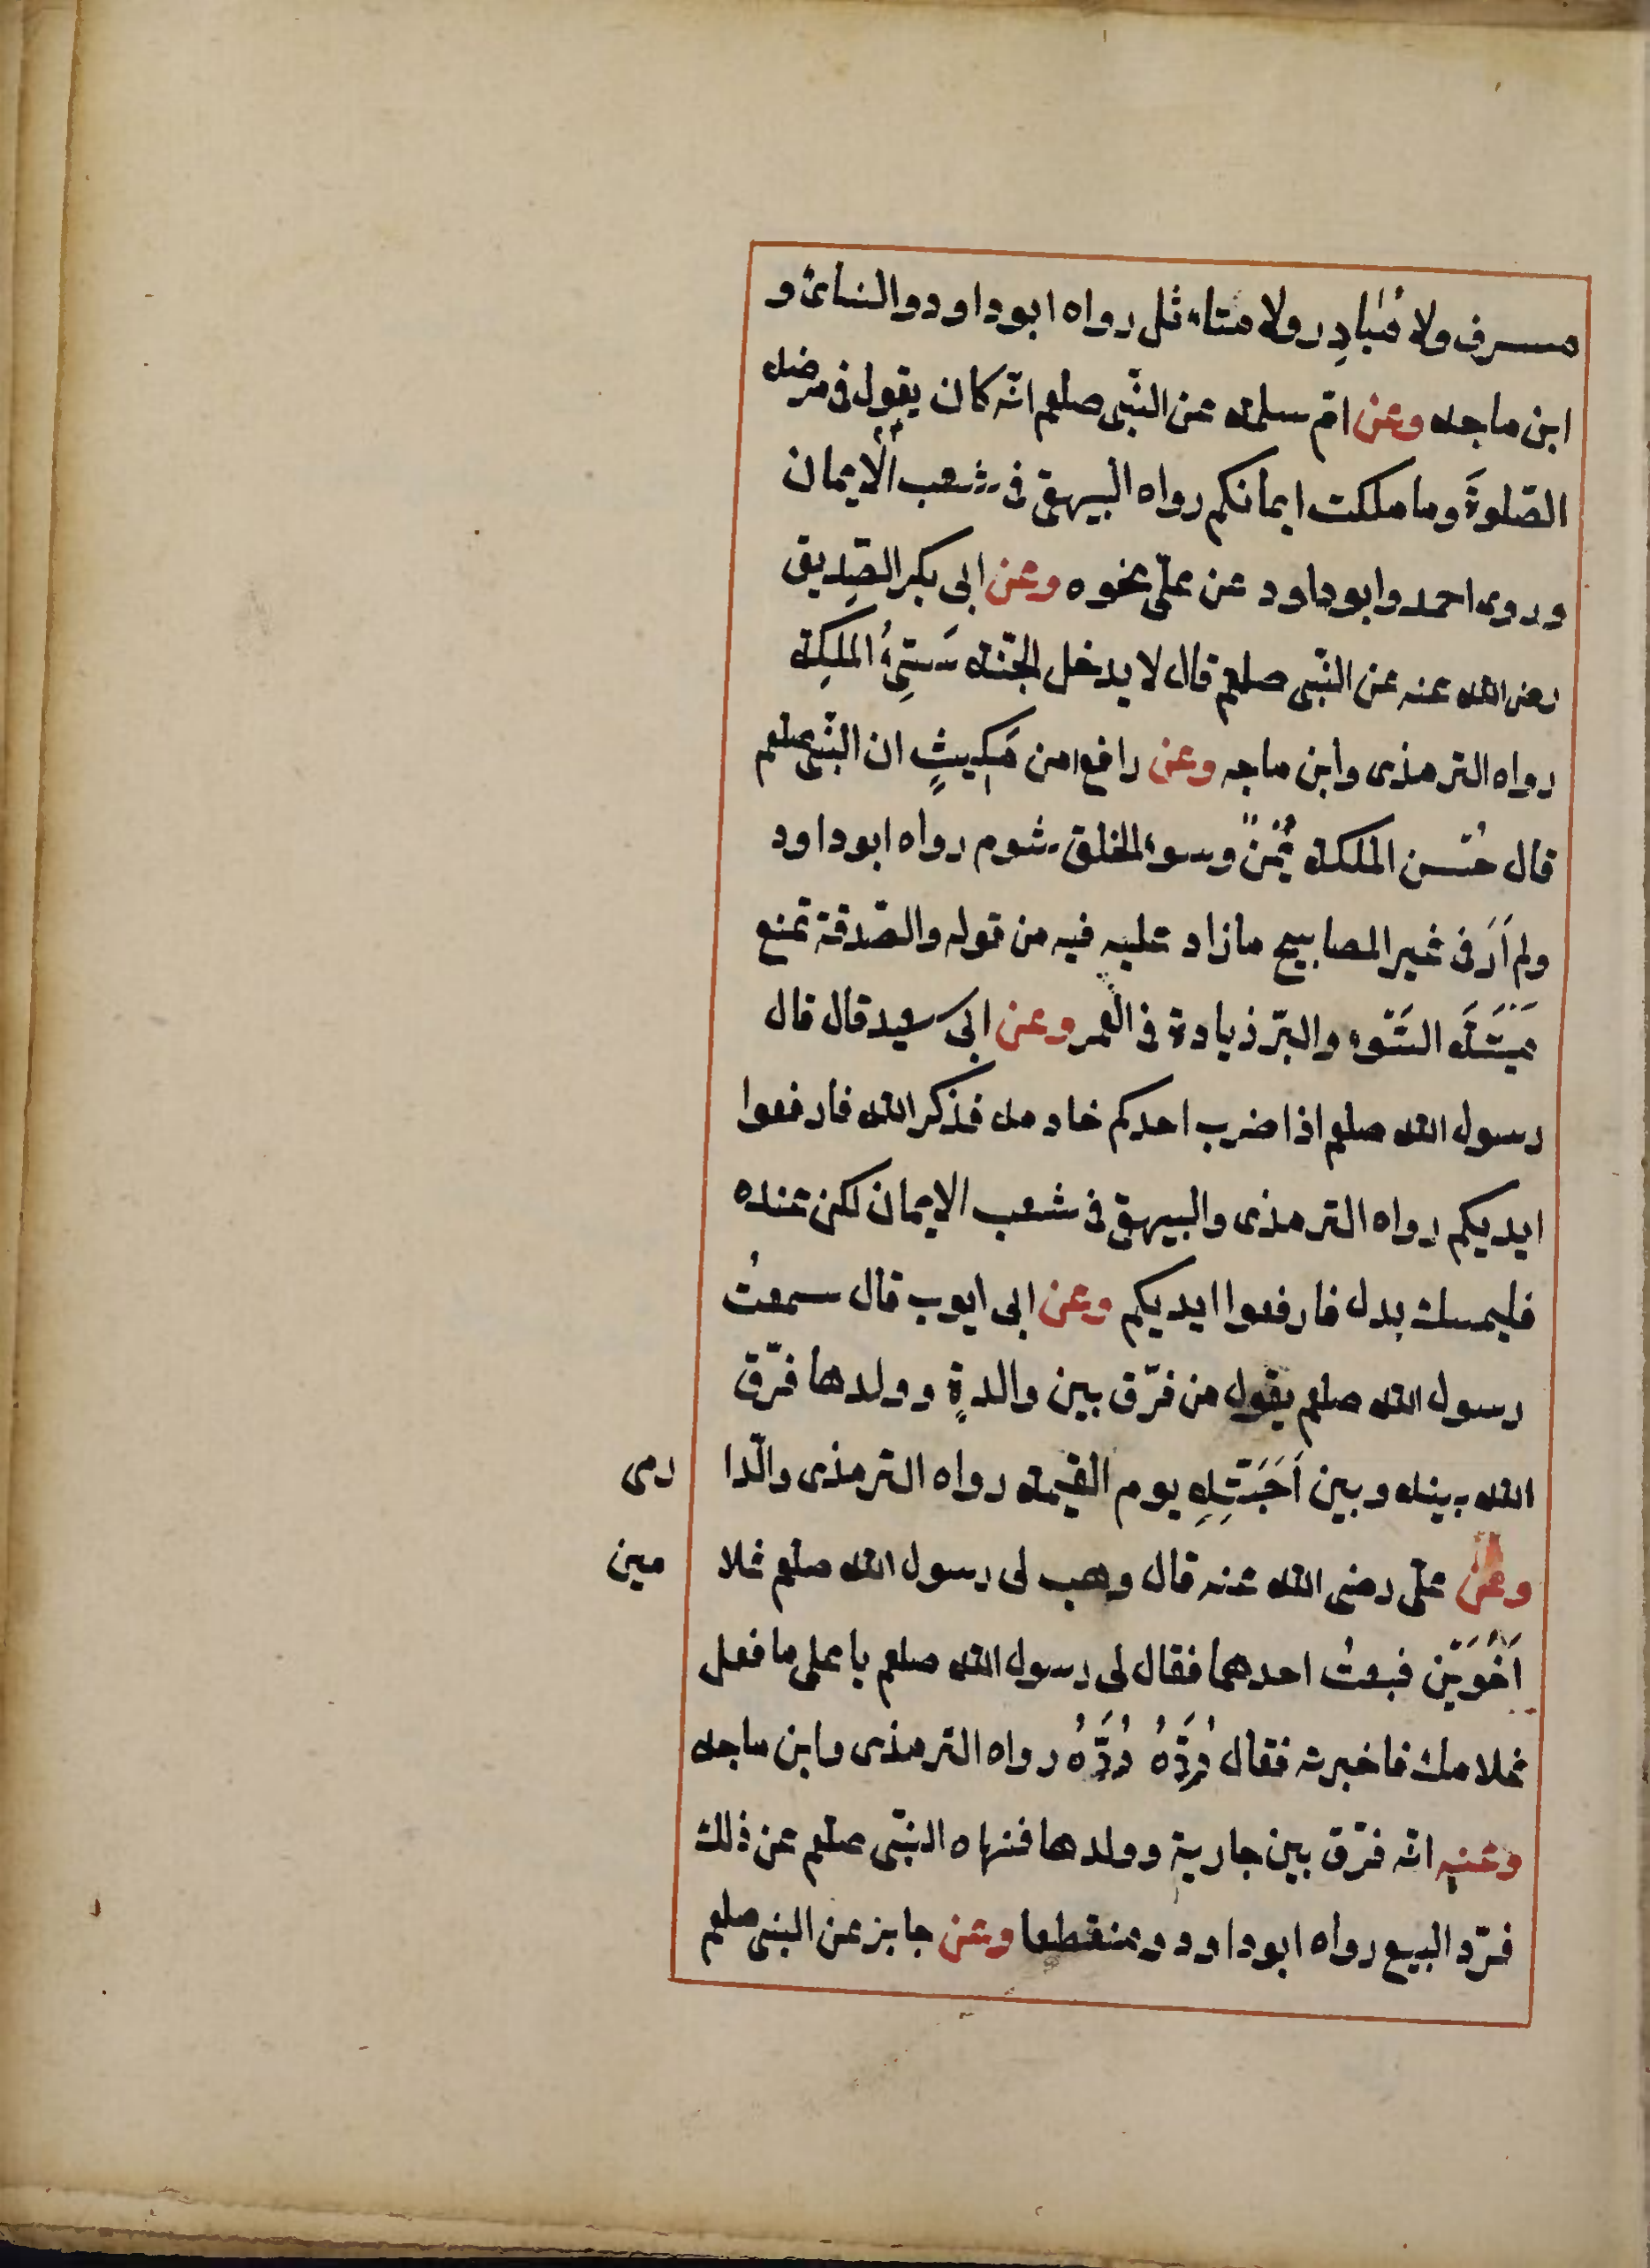 مسرف ولا مُبَادِر ولا متاءثل رواه ابوداود والنسائ و
ابن ماجه وعن امّ سلمة عن النّبى صلعم انّه كان يقول فى مرضه
الصّلوةَ وما ملكت ايمانكم رواه البيهقى فى شعب الايمان
وروى احمد وابوداود عن علىّ نحوه وعن ابى بكر الصِّديق
رضى الله عنه عن النّبى صلعم قال لا يدخل الجنّة سَيِّئُ الملكِة
رواه الترمذى وابن ماجه وعن رافع بن مَكِيثٍ ان النّبى صلعم
قال حُسن الملكة يُمْنٌ وسوء الخلق شوم رواه ابوداود
ولم أَرَ فى غير المصابيح مازاد عليه فيه من قوله والصّدقة تمنع
مَيْتَةَ السَّوء والبرّ زيادة فى العمر وعن ابى سعيد قال قال
رسول الله صلعم اذا ضرب احدكم خادمه فذكر الله فارفعوا
ايديكم رواه الترمذى والبيهقى فى شعب الايمان لكن عنده
فليمسك بدل فارفعوا ايديكم وعن ابى ايوب قال سمعتُ
رسول الله صلعم يقول من فرّق بين والدةٍ وولدها فرّق
الله بينه وبين اَحَبَّتِهِ يوم القيمة رواه الترمذى والّدا رمى
وعن علىّ رضى الله عنه قال وهب لى رسول الله صلعم غلا مين
اَخَوَيْن فبعتُ احدهما فقال لى رسول الله صلعم يا على ما فعل
غلامك فاخبرته فقال رُدَّهُ رُدَّهُ رواه الترمذى وابن ماجه
وعنه انّه فرّق بين جارية وولدها فنهاه النبّى صلعم عن ذلك
فردّ البيع رواه ابوداود ومنقطعا وعن جابر عن النبى صلعم